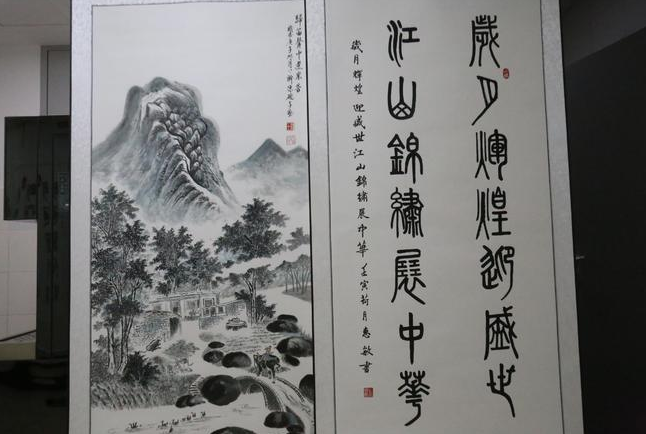 歲月煇煌迎盛世
江山錦繡展中華
歲月輝煌迎盛世江山錦繡展中華 壬寅荷月惠敏書
歸笛聲中